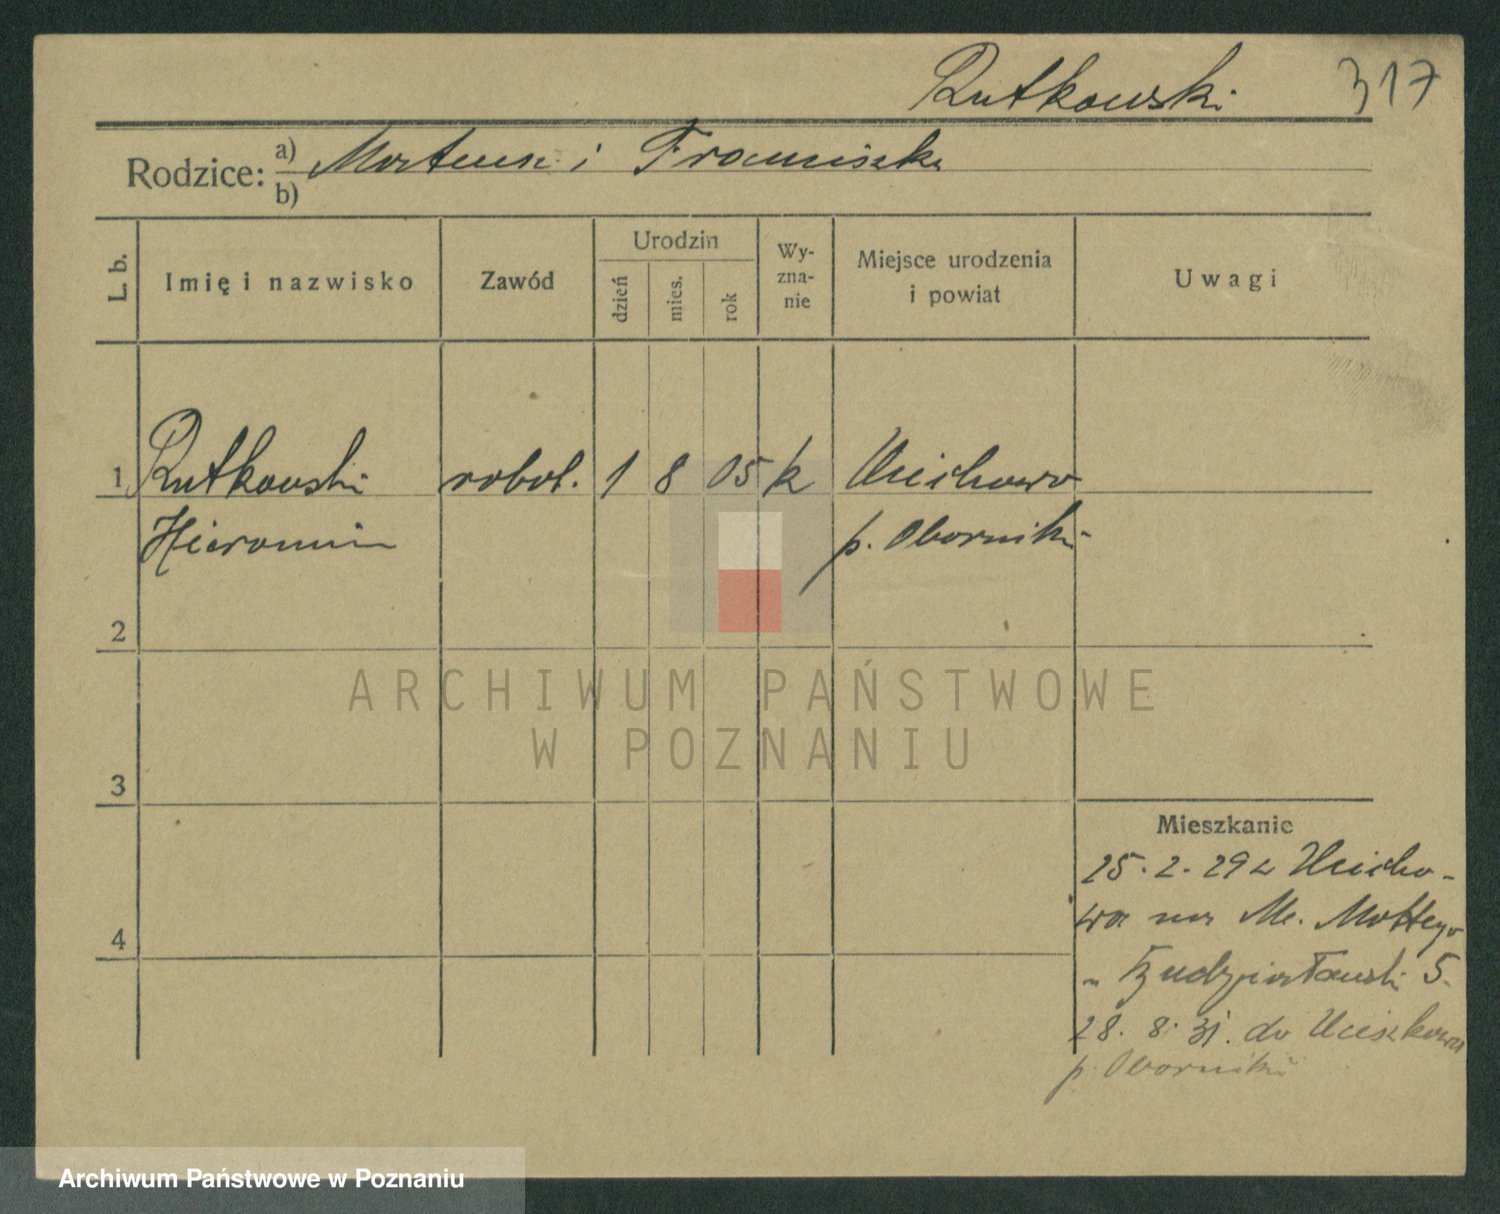 Rutkowski 317
Rodzice: a) i Franciszka
b)
L. b.
Imię i nazwisko
Zawód
Urodzin
dzień
mies.
rok
Wy-
zna-
nie
Miejsce urodzenia
i powiat
Uwagi
1 Rutkowski robot. 1 8 05 k
Hieronim p. Oborniki
2
3
4
Mieszkanie
25. 2. 29 z
wa na Mottego
5.
28. 8. 31. do
p. Oborniki
ARCHIWUM PAŃSTWOWE
W POZNANIU
Archiwum Państwowe w Poznaniu